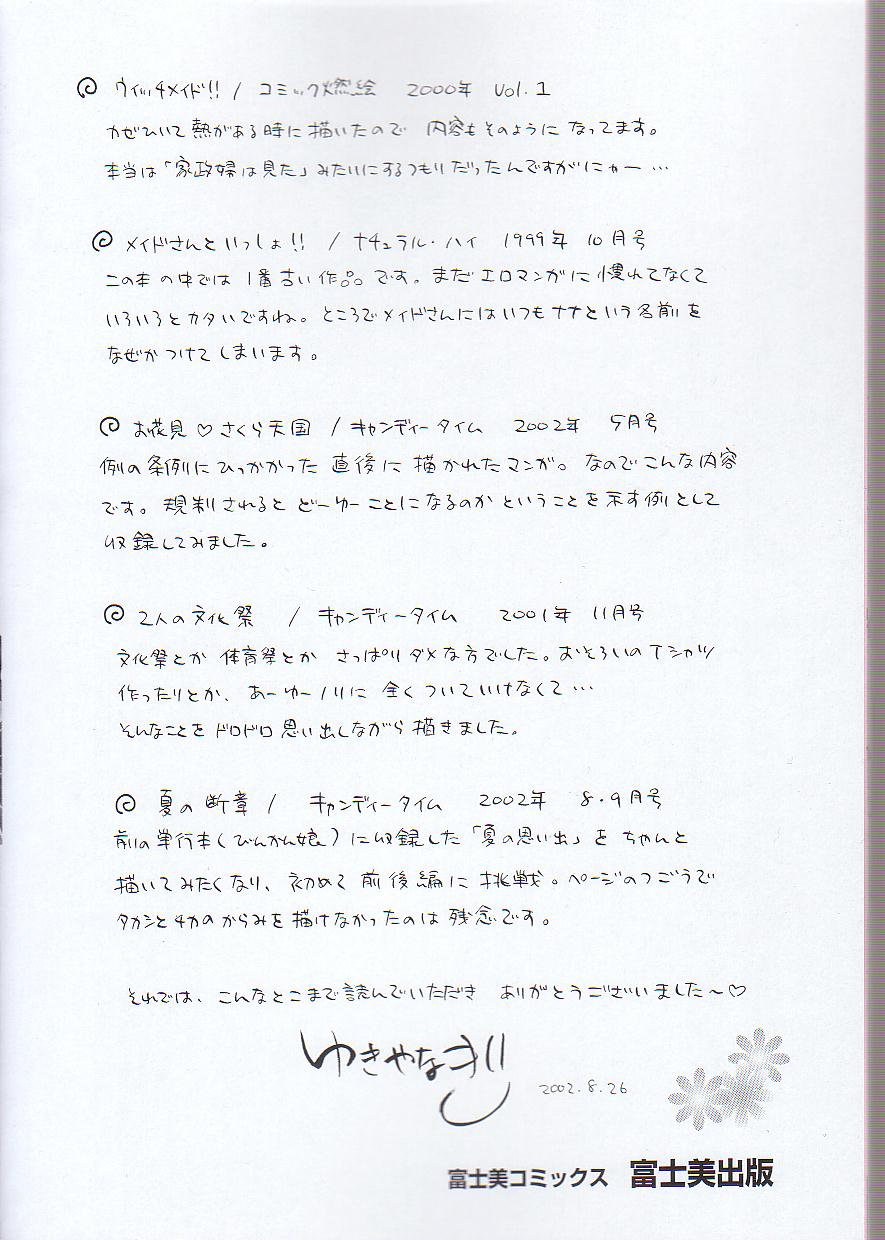 ウィッチメイド!! / コミック燃絵 2000年 Vol.1
かぜひいて熱がある時に描いたので 内容もそのように なってます。
本当は「家政婦は見た」みたいにするつもりだったんですがにゃー…
メイドさんといっしょ!! / ナチュラル・ハイ 1999年 10月号
この本の中では 1番古い作品です。まだエロマンガに慣れてなくて
いろいろとカタいですね。ところでメイドさんにはいつもナナという名前を
なぜかつけてしまいます。
お花見♡さくら天国 / キャンディータイム 2002年 5月号
例の条例にひっかかった直後に描かれたマンガ。なのでこんな内容
です。規制されると どーゆーことになるのか ということを示す例として
収録してみました。
2人の文化祭 / キャンディータイム 2001年 11月号
文化祭とか 体育祭とか さっぱりダメな方でした。おそろいのTシャツ
作ったりとか、あーゆーノリに 全くついていけなくて…
そんなことをドロドロ思い出しながら描きました。
夏の断章 / キャンディータイム 2002年 8・9月号
前の単行本(びんかん娘)に収録した「夏の思い出」をちゃんと
描いてみたくなり、初めて前後編に挑戦。ページのつごうで
タカシとチカのからみを描けなかったのは残念です。
それでは、こんなとこまで読んでいただき ありがとうございました〜♡
ゆきやなぎ
2002.8.26
富士美コミックス 富士美出版